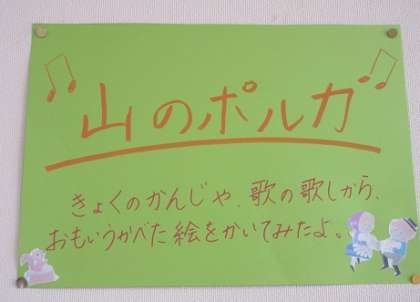 山のポルカ
きょくのかんじや、歌の歌しから、
おもいうかべた絵をかいてみたよ。